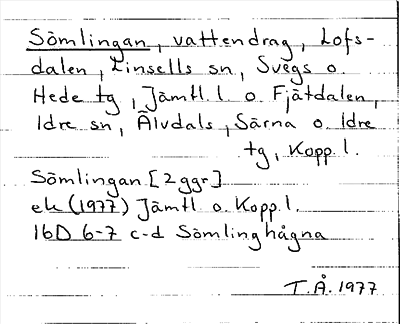 Sömlingan, vattendrag, Lofs-
dalen, Linsells sn, Svegs o.
Hede tg, Jämtl. l. o Fjätdalen,
Idre sn, Älvdals, Särna o. Idre
tg, Kopp. l.
Sömlingan [2 ggr]
ek (1977) Jämtl o. Kopp l.
16D 6-7 c-d Sömlinghågna
T.Å. 1977